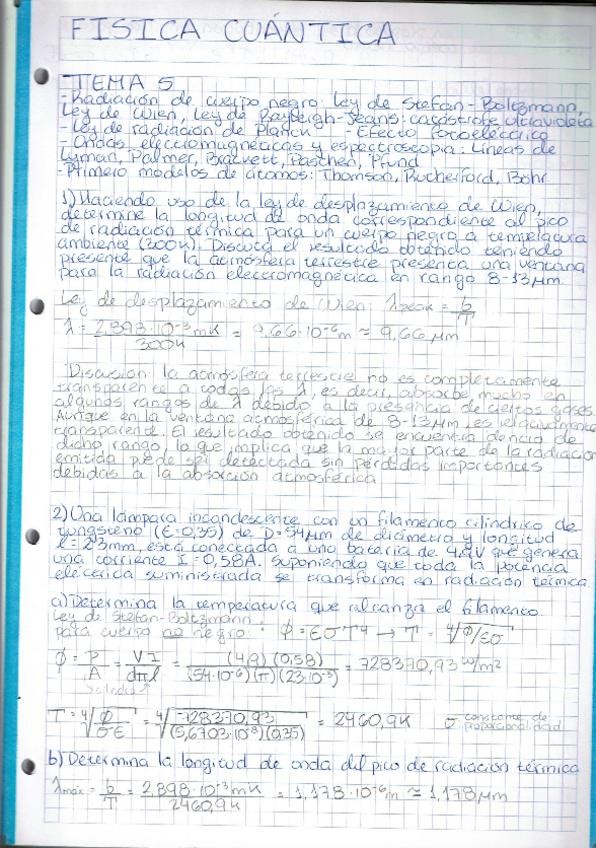 FISICA CUÁNTICA
TEMA 5
- Radiación de cuerpo negro: Ley de Stefan - Boltzmann,
Ley de Wien, Ley de Rayleigh-Jeans: catástrofe ultravioleta
- Ley de radiación de Planck - Efecto fotoeléctrico
- Ondas electromagnéticas y espectroscopia: Líneas de
Lyman, Palmer, Brackett, Paschen, Pfund
- Primero modelos de átomos: Thomson, Rutherford, Bohr
1) Haciendo uso de la ley de desplazamiento de Wien,
determine la longitud de onda correspondiente al pico
de radiación térmica para un cuerpo negro a temperatura
ambiente (300K). Discuta el resultado obtenido teniendo
presente que la atmósfera terrestre presenta una ventana
para la radiación electromagnética en rango 8-13 μm.
Ley de desplazamiento de Wien: λpeak = b/T
λ = 2,898·10⁻³mK / 300K = 9,66·10⁻⁶m ≈ 9,66 μm
Discusión: la atmósfera terrestre no es completamente
transparente a todas las λ, es decir, absorbe mucho en
algunos rangos de λ debido a la presencia de ciertos gases.
Aunque en la ventana atmosférica de 8-13μm, es relativamente
transparente. El resultado obtenido se encuentra dentro de
dicho rango, lo que implica que la mayor parte de la radiación
emitida puede ser detectada sin pérdidas importantes
debidas a la absorción atmosférica
2) Una lámpara incandescente con un filamento cilíndrico de
tungsteno (ε=0,35) de D=54μm de diámetro y longitud
l=23mm, está conectada a una batería de 4,9V que genera
una corriente I=0,58A. Suponiendo que toda la potencia
eléctrica suministrada se transforma en radiación térmica
a) Determina la temperatura que alcanza el filamento
Ley de Stefan-Boltzmann
para cuerpo no negro: ϕ = εσT⁴ → T = ⁴√ϕ/εσ
ϕ = P/A = VI/dπl = (4,9)(0,58) / (54·10⁻⁶)(π)(23·10⁻³) = 728370,93 W/m²
T = ⁴√ϕ/σε = ⁴√728370,93 / (5,6703·10⁻⁸)(0,35) = 2460,9K σ constante de
proporcionalidad
b) Determina la longitud de onda del pico de radiación térmica
λmax = b/T = 2,898·10⁻³mK / 2460,9K = 1,178·10⁻⁶m ≈ 1,178μm